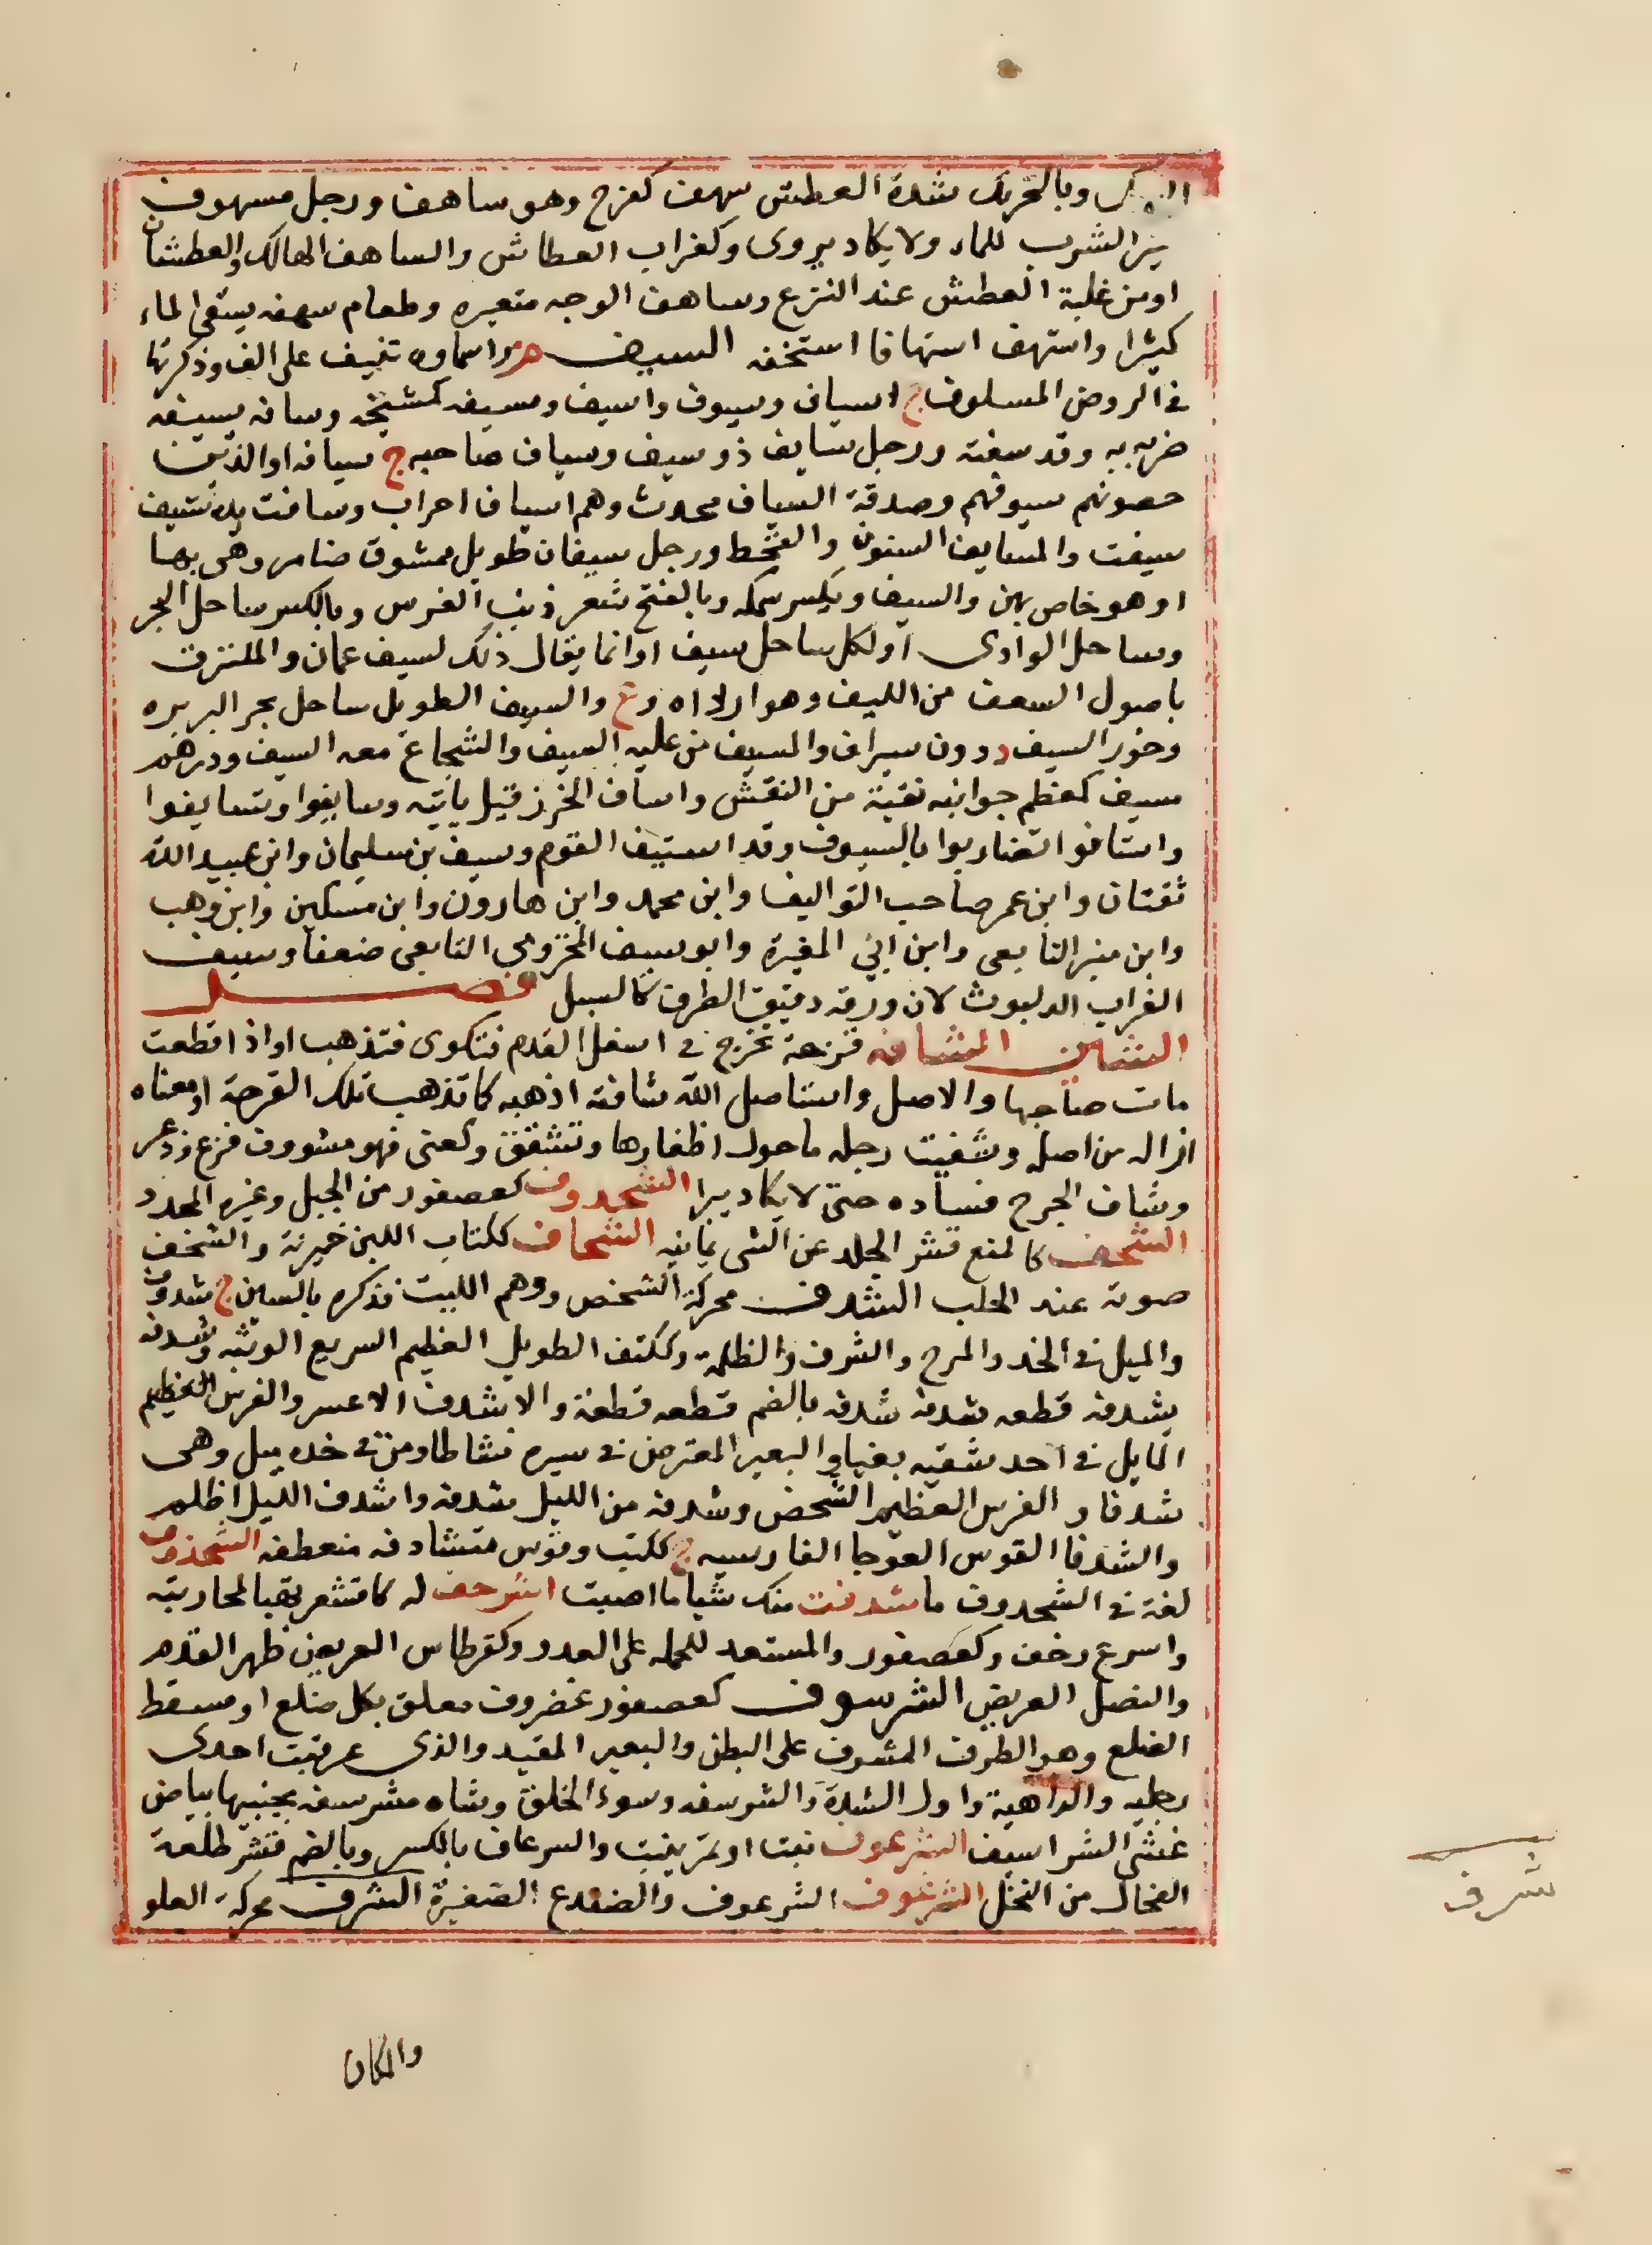 السمك وبالتحريك شدة العطش سهف كفرح وهو ساهف ورجل مسهوف
يثر الشرب للماء ولا يكاد يروى وكغراب العطاش والساهف الهالك والعطشان
او من غلبة العطش عند النزع وساهف الوجه متغيره وطعام مسهفه يستقى الماء
كثيرا واستهف استهافا استخفه السيف مر واسماوه تنيف على الف وذكرتها
في الروض المسلوف ج اسياف وسيوف واسيف ومسيفه كمشيخه وسافه يسيفه
ضربه به وقد سفته ورجل سايف ذو سيف وسياف صاحبه ج سيافه او الذين
حصونهم سيوفهم وصدقة السياف محدث وهم اسياف احراب وسافت يده تسيف
سيفت والمسايف السنون والقحط ورجل سيفان طويل ممشوق ضامر وهى بها
او هو خاص بهن والسيف ويكسر سمكه وبالفتح شعر ذنب الفرس وبالكسر ساحل البحر
وساحل الوادى او لكل ساحل سيف او انما يقال ذلك لسيف عمان والملتزق
باصول السعف من الليف وهو ارداه وع والسيف الطويل ساحل بحر البربره
وخور السيف د دون سيراف والمسيف من عليه السيف والشجاع معه السيف ودرهم
مسيف كمعظم جوانبه نقية من النقش واساف الخرز قيل يائيه وسايفوا وتسايفوا
واستافوا تضاربوا بالسيوف وقد استيف القوم وسيف بن سليمان وابن عبيد الله
ثقتان وابن عمر صاحب التواليف وابن محمد وابن هارون وابن مسكين وابن وهب
وابن منير التابعى وابن ابي المغيرة وابو سيف المخزومى التابعى ضعفا وسيف
الغراب الدلبوث لان ورقه دقيق الطرف كالسيف فصل
الشين الشافه قرحة تخرج في اسفل القدم فتكوى فتذهب او اذا قطعت
مات صاحبها والاصل واستاصل الله شافته اذهبه كما تذهب تلك القرحة او معناه
ازاله من اصله وشفيت رجله ما حول اظفارها وتشقق وكعنى فهو مشووف فزع وذعر
وشاف الجرح فساده حتى لا يكاد يبرا الشحدوف كعصفور من الجبل وغيره المحدد
الشحف كالمنع قشر الجلد عن الشى يمانيه الشخاف ككتاب اللبن حميرية والشخف
صوته عند الحلب الشدف محركة الشخص ووهم الليت فذكره بالسين ج شدوف
والميل في الخد والمرح والشرف والظلمة وككتف الطويل العظيم السريع الوثبه وشدفه
يشدفه قطعه شدفة شدفه بالضم قطعه قطعة والاشدف الاعسر والفرس العظيم
المايل في احد شقيه بغيا والبعير المعترض في سيره نشاطا ومن في خده ميل وهى
شدفا والفرس العظيم الشخص وشدفه من الليل شدفه واشدف الليل اظلم
والشدفا القوس العوجا الفارسيه ج ككتب وقوس متشادفه منعطفه الشحذوف
لغة في الشحدوف ما شدفت منك شيا ما اصبت اشرحف له كاقشعر تهيا لمحاربته
واسرع وخف وكعصفور والمستعد للحمله على العدو وكقرطاس العريض ظهر القدم
والنصل العريض الشرسوف كعصفور غضروف معلق بكل ضلع او مسقط
الضلع وهو الطرف المشرف على البطن والبعير المقيد والذى عرقبت احدى
رجليه والداهية واول الشدة والشرسفه وسوء الخلق وشاه مشرسفه بجنبيها بياض
غشى الشراسيف الشرعوف نبت او ثمر ينبت والسرعاف بالكسر وبالضم قشر طلعة
الفحال من النخل الشرنغوف الشرعوف والضفدع الصغيرة الشرف محركة العلو
والمكان
شرف